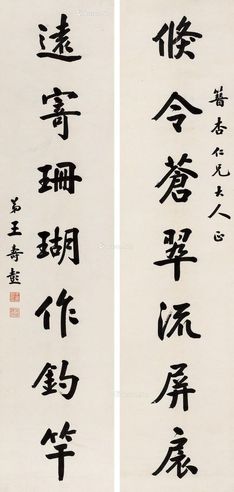 簪杏仁兄大人正
倏令蒼翠流屏扆
遠寄珊瑚作釣竿
弟王壽彭